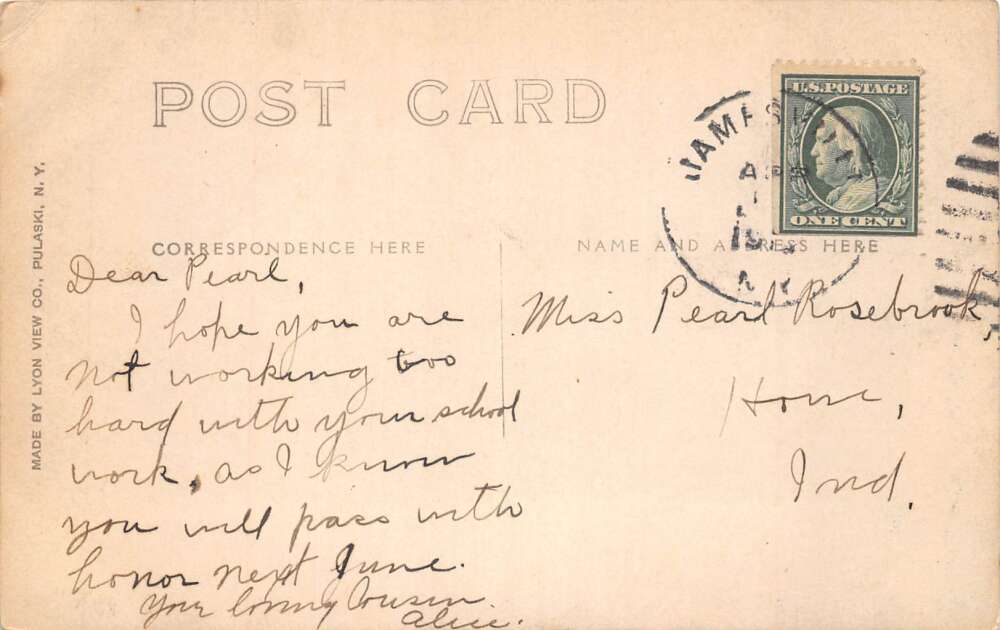 POST CARD
U.S. POSTAGE
ONE CENT
APR
MADE BY LYON VIEW CO., PULASKI, N. Y.
CORRESPONDENCE HERE
NAME AND ADDRESS HERE
Dear Pearl,
I hope you are
not working too
hard with your school
work, as I know
you will pass with
honor next June.
Your loving Cousin.
Alice.
Miss Pearl Rosebrook,
Howe,
Ind.